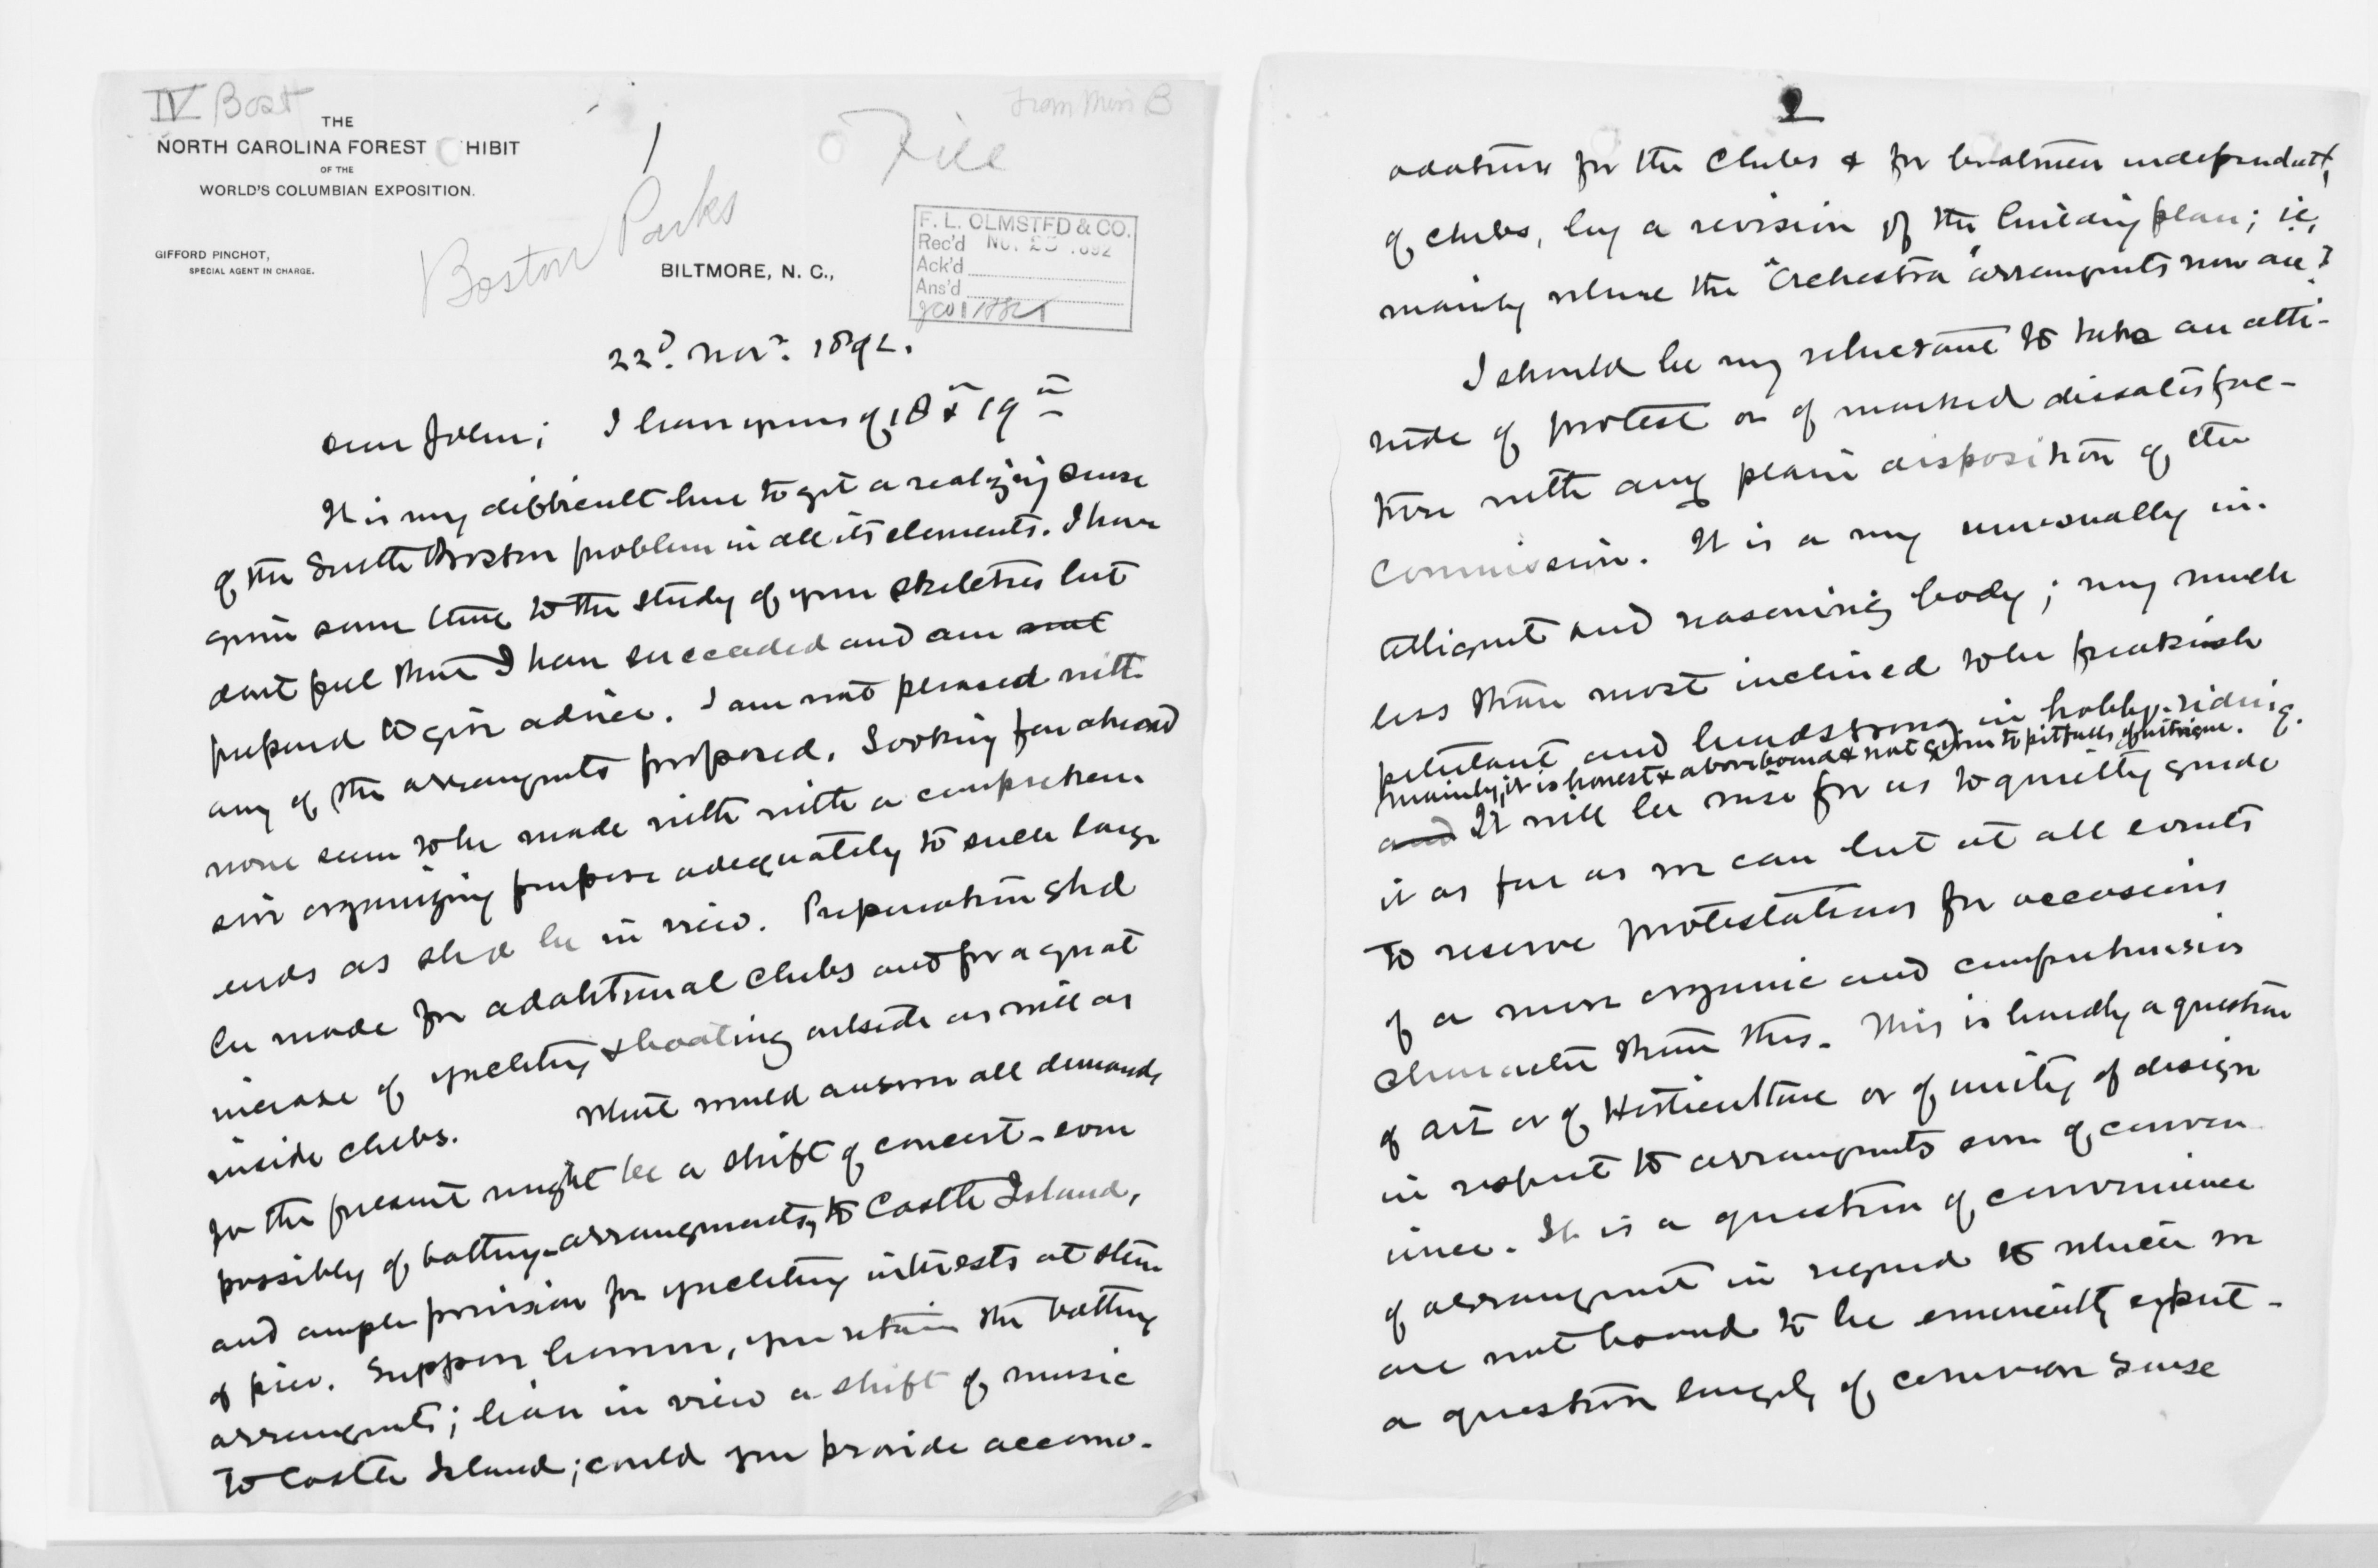 IV Bost
From Miss B
THE
NORTH CAROLINA FOREST HIBIT
OF THE
WORLD'S COLUMBIAN EXPOSITION.
1
File
Boston Parks
GIFFORD PINCHOT,
SPECIAL AGENT IN CHARGE.
BILTMORE, N. C.,
F. L. OLMSTED & CO.
Rec'd No. 25 .892
Ack'd
Ans'd
22d. Novr. 1892.
Dear John; I have yours of 18 & 19th
It is very difficult here to get a realizing sense
of the South Boston problem in all its elements. I have
given some time to the study of your sketches but
don't feel that I have succeeded and am not
prepared to give advice. I am not pleased with
any of the arrangmts proposed. Looking far ahead
none seem to be made with with a comprehen
sive organizing purpose adequately to such large
ends as shd be in view. Preparation shd
be made for additional clubs and for a great
increase of yachting & boating outside as well as
inside clubs. What would answer all demands
for the present might be a shift of concert - even
possibly of bathing - arrangments, to Castle Island,
and ample provision for yachting interests at stem
of pier. Suppose however, you retain the bathing
arrangmts; have in view a shift of music
to Castle Island; could you provide accomo-
2
dations for the Clubs & for boatmen independent,
of clubs, by a revision of the building plan; i.e.,
mainly where the "Orchestra" arrangmts now are?
I should be very reluctant to take an atti-
tude of protest or of marked dissatisfac-
tion with any plain disposition of the
Commission. It is a very unusually in-
telligent and reasoning body; very much
less than most inclined to be freakish
petulant and headstrong in hobby-riding.
Mainly, it is honest & aboveboard & not given to pitfalls of intrigue.
and It will be wise for us to quietly guide
it as far as we can but at all events
to reserve protestations for occasions
of a more organic and comprehensive
character than this. This is hardly a question
of art or of Horticulture or of unity of design
in respect to arrangmts even of conven
ience. It is a question of convenience
of arrangmnt in regard to which we
are not bound to be eminently expert -
a question largely of common sense